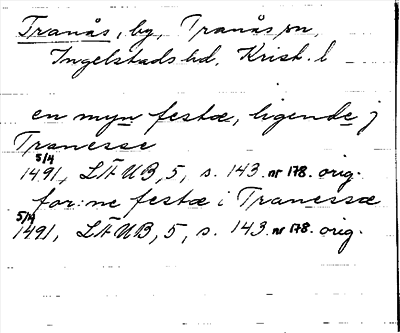 Tranås, by, Tranås sn,
Ingelstads hd, Krist. l
en myn festæ, ligende j
Tranesse
5/4
1491, LÄUB, 5, s. 143 nr 178. orig.
for:ne festæ i Tranessæ
5/4
1491, LÄUB, 5, s. 143. nr 178. orig.